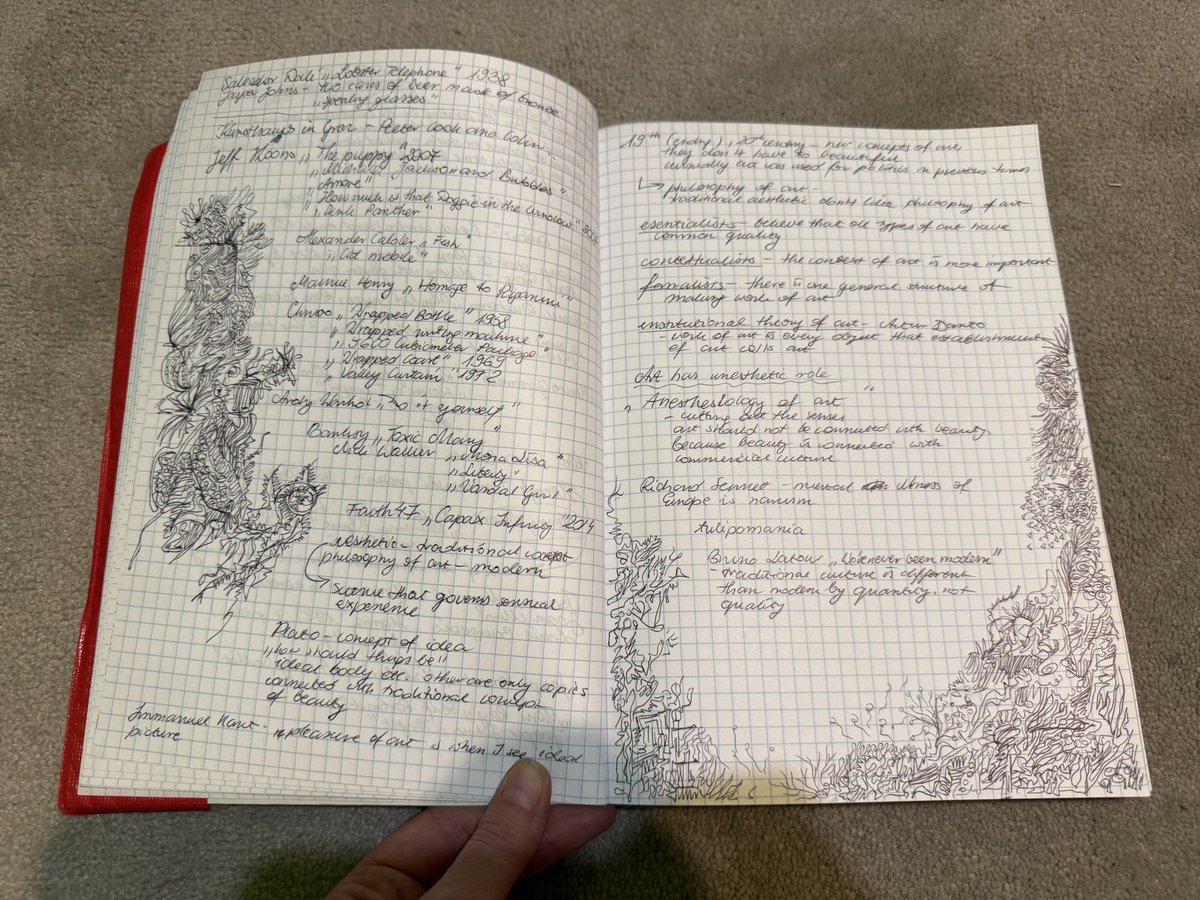 Salvador Dali „Lobster Telephone" 1938
Jasper Johns - two cans of beer made of bronze
glasses"
Kunsthaus in Graz - Peter Cook and Colin...
Jeff Koons „The puppy" 2007
„Michael Jackson and Bubbles"
„Amore"
„How much is that Doggie in the Window"
„Pink Panther"
Alexander Calder „Fish"
„Cat mobile"
Henry „Homage to Paganini"
Christo „Wrapped Bottle" 1958
„Wrapped writing machine"
„5600 Cubicmeter Package"
„Wrapped Coast" 1969
„Valley Curtain" 1972
Andy Warhol „Do it yourself"
Banksy „Toxic Mary"
Nick Walker „Mona Lisa"
„Liberty"
„Vandal Gurl"
Faith47 „Capax Infiniy" 2014
aesthetic - traditional concept
philosophy of art - modern
Science that governs sensual
experience
Plato - concept of idea
„how should things be"
ideal body etc. other are only copies
connected with traditional concept
of beauty
Immanuel Kant - pleasure of art is when I see
picture
19th (endry), 20th entry - new concepts of art
they don't have to beautiful
usually art was used for politics in previous times
philosophy of art -
traditional aesthetic donts like philosophy of art
esentialists - believe that all types of art have
common quality
contextualists - the context of art is more important
formalists - there is one general structure of
making work of art
institutional theory of art - Artur Danto
- work of art is every object that establishment
of art calls art
Art has unesthetic role
„Anesthesiology of art"
- cutting out the senses
art should not be connected with beauty
because beauty is connected with
commercial culture
Richard Sennet - mental illness of
Europe is narcism
tulipomania
Bruno Latour „We never been modern"
- traditional culture is different
than modern by quantity, not
quality